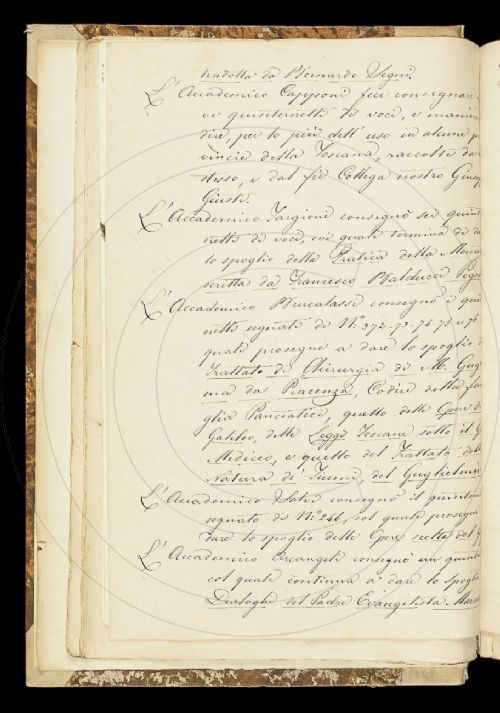 tradotta da Bernardo Segni.
L'Accademico Capponi fece consegnare
quinternetti di voci, e maniere
dire, per lo più dell'uso in alcune
vincie della Toscana, raccolte da
stesso, e dal fù Collega nostro Giuseppe
Giusti.
L'Accademico Targioni consegnò sei
netti di voci, coi quali termina di
lo spoglio della Pratica della
scritta da Francesco Balducci
L'Accademico Brucalassi consegnò
netti segnati di N.i 372-73-74-75 e 76
quali prosegue a dare lo spoglio
Trattato di Chirurgia di M.
ma da Piacenza, Codice della
glia Panciatici, quello delle Opere
Galileo, delle Leggi Toscane sotto il
Mediceo, e quello del Trattato della
Natura de' Fiumi, del Guglielmini
L'Accademico Valeri consegnò il
segnato di N.o 246, col quale prosegue
dare lo spoglio delle Opere scelte del
L'Accademico Arcangeli consegnò un
col quale continua a dare lo spoglio
Dialoghi del Padre Evangelista